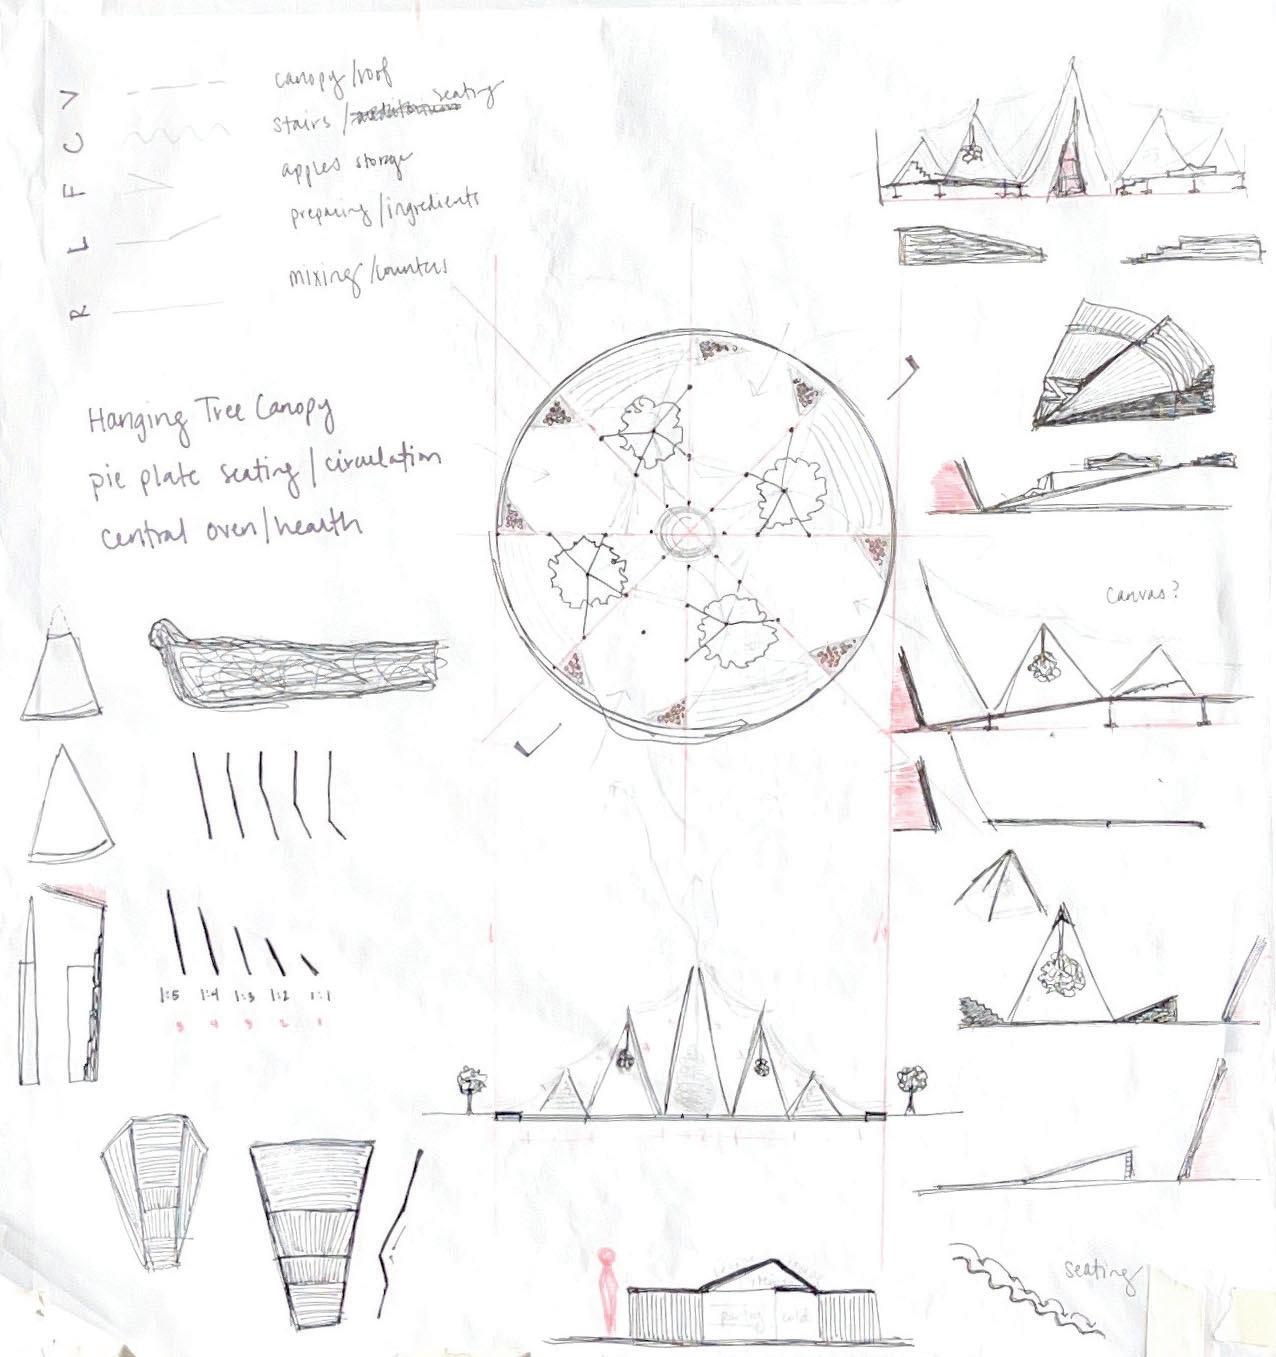 V
C
F
L
R
canopy/roof
stairs / seating
apples storage
preparing/ingredients
mixing/counters
Hanging Tree Canopy
pie plate seating/circulation
central oven/hearth
canvas?
1:5 1:4 1:3 1:2 1:1
5 4 3 2 1
cold
seating